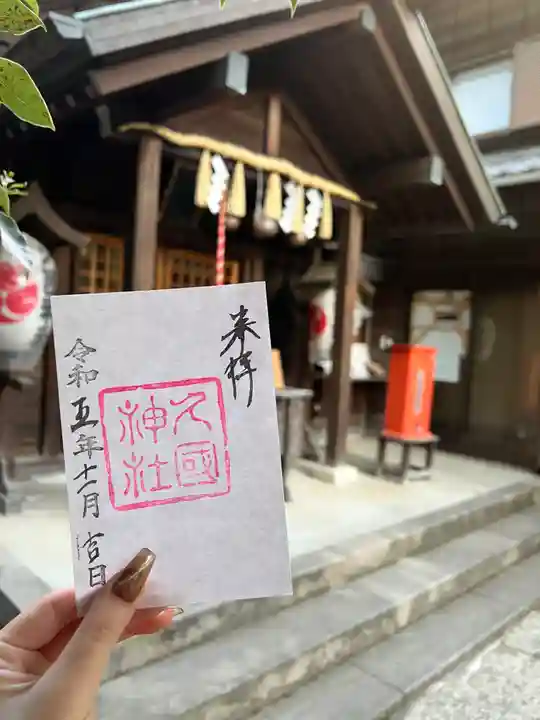 来拝
久國
神社
令和五年十一月吉日